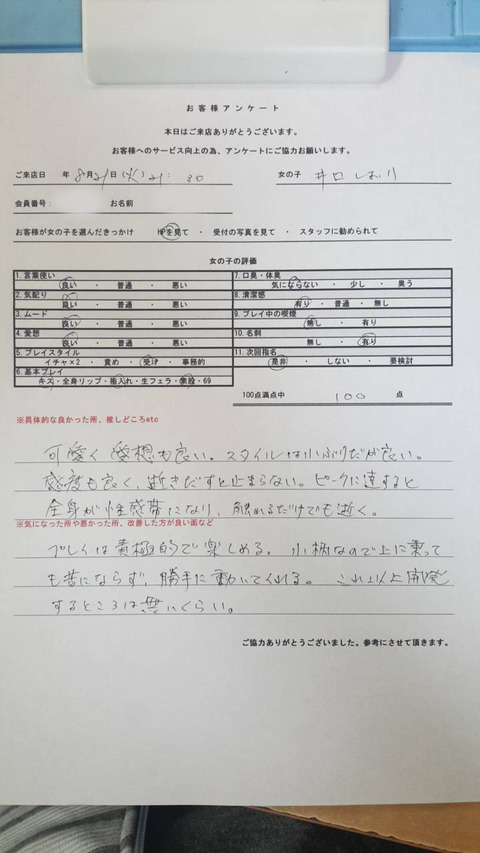 お客様アンケート
本日はご来店ありがとうございます。
お客様へのサービス向上の為、アンケートにご協力お願いします。
ご来店日 年 8月21日(火)21:30 女の子 井口しおり
会員番号: お名前
お客様が女の子を選んだきっかけ HPを見て ・ 受付の写真を見て ・ スタッフに勧められて
女の子の評価
1.言葉使い
良い ・ 普通 ・ 悪い
2.気配り
良い ・ 普通 ・ 悪い
3.ムード
良い ・ 普通 ・ 悪い
4.愛想
良い ・ 普通 ・ 悪い
5.プレイスタイル
イチャ×2 ・ 責め ・ 受け ・ 事務的
6.基本プレイ
キス・全身リップ・指入れ・生フェラ・素股・69
7.口臭・体臭
気にならない ・ 少し ・ 臭う
8.清潔感
有り ・ 普通 ・ 無し
9.プレイ中の喫煙
無し ・ 有り
10.名刺
無し ・ 有り
11.次回指名
是非 ・ しない ・ 要検討
100点満点中 100 点
※具体的な良かった所、推しどころetc
可愛く愛想も良い。スタイルは小ぶりだが良い。
感度も良く、逝きだすと止まらない。ピークに達すると
全身が性感帯になり、触れるだけでも逝く。
※気になった所や悪かった所、改善した方が良い面など
プレイは積極的で楽しめる。小柄なので上に乗って
も苦にならず、勝手に動いてくれる。これ以上開発
するところは無いくらい。
ご協力ありがとうございました。参考にさせて頂きます。